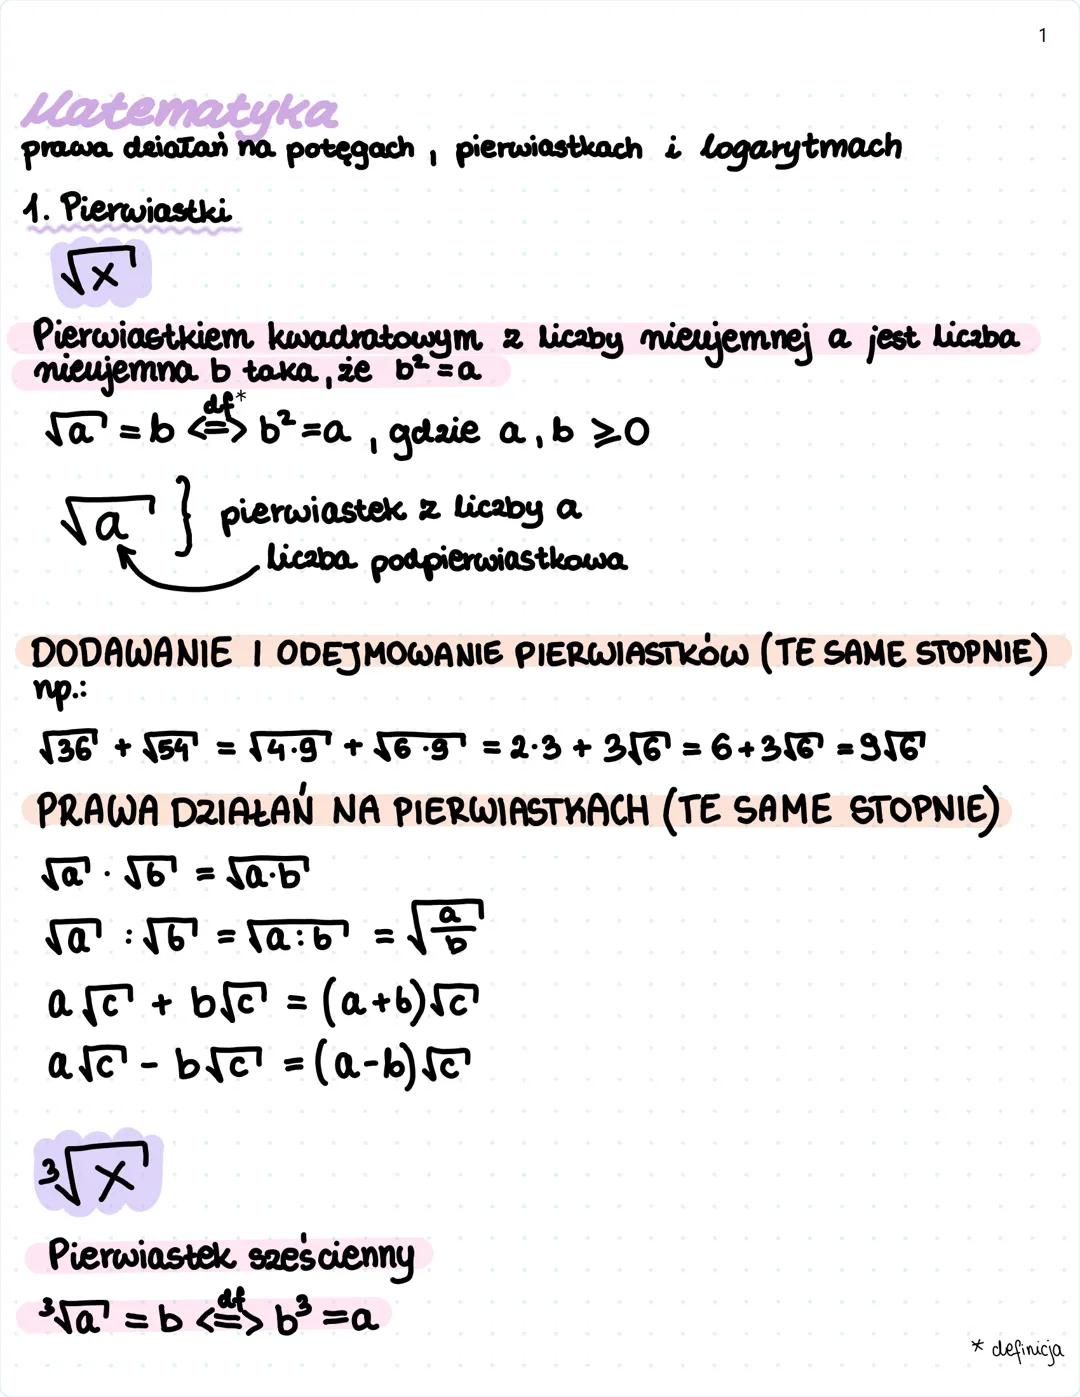 1
Matematyka
prawa działań na potęgach, pierwiastkach i logarytmach
1. Pierwiastki
√x
Pierwiastkiem kwadratowym z liczby nieujemnej a jest liczba
nieujemna b taka, że b² = a
√a = b <=> b² = a, gdzie a, b ⩾ 0
df*
√a } pierwiastek z liczby a
liczba podpierwiastkowa
DODAWANIE I ODEJMOWANIE PIERWIASTKÓW (TE SAME STOPNIE)
np.:
√36 + √54 = √4·9 + √6·9 = 2·3 + 3√6 = 6+3√6 = 9√6
PRAWA DZIAŁAŃ NA PIERWIASTKACH (TE SAME STOPNIE)
√a · √b = √a·b
√a : √b = √a:b = √a/b
a√c + b√c = (a+b)√c
a√c - b√c = (a-b)√c
³√x
Pierwiastek sześcienny
³√a = b <=> b³ = a
df
* definicja